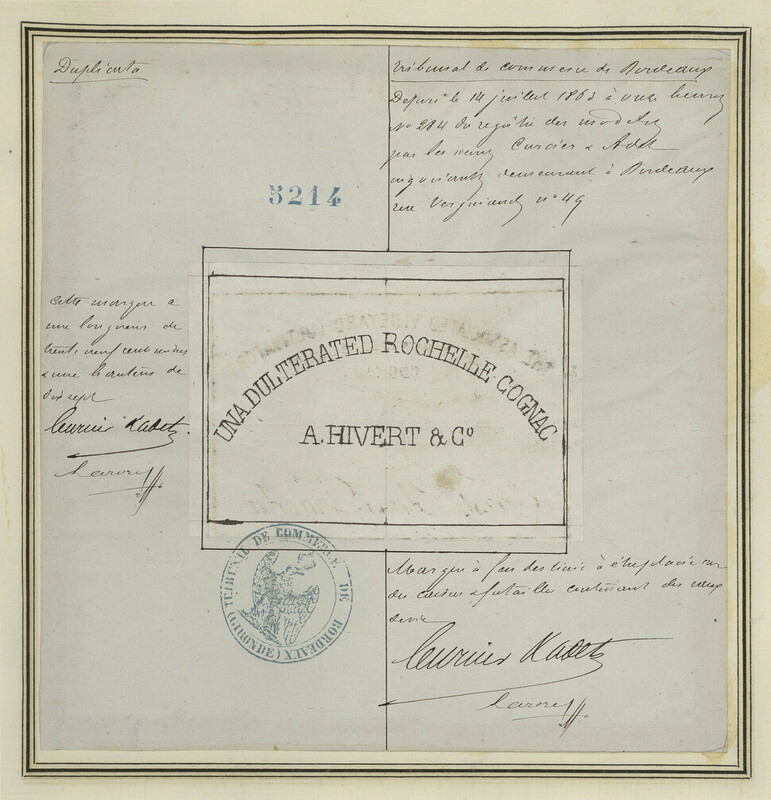 Duplicata
Tribunal de commerce de Bordeaux
Depuis le 14 juillet 1863 à onze heures
N° 284 du registre des modèles
par les sieurs Curcier &
négociants demeurant à Bordeaux
rue Vergniaud n° 49
5214
UNADULTERATED ROCHELLE COGNAC
A. HIVERT & Cº
cette marque a
une longueur de
trente neuf centimètres
& une hauteur de
dix sept
TRIBUNAL DE COMMERCE DE BORDEAUX (GIRONDE)
Marque à feu destinée à être placée sur
des caisses & futailles contenant des eaux
de vie